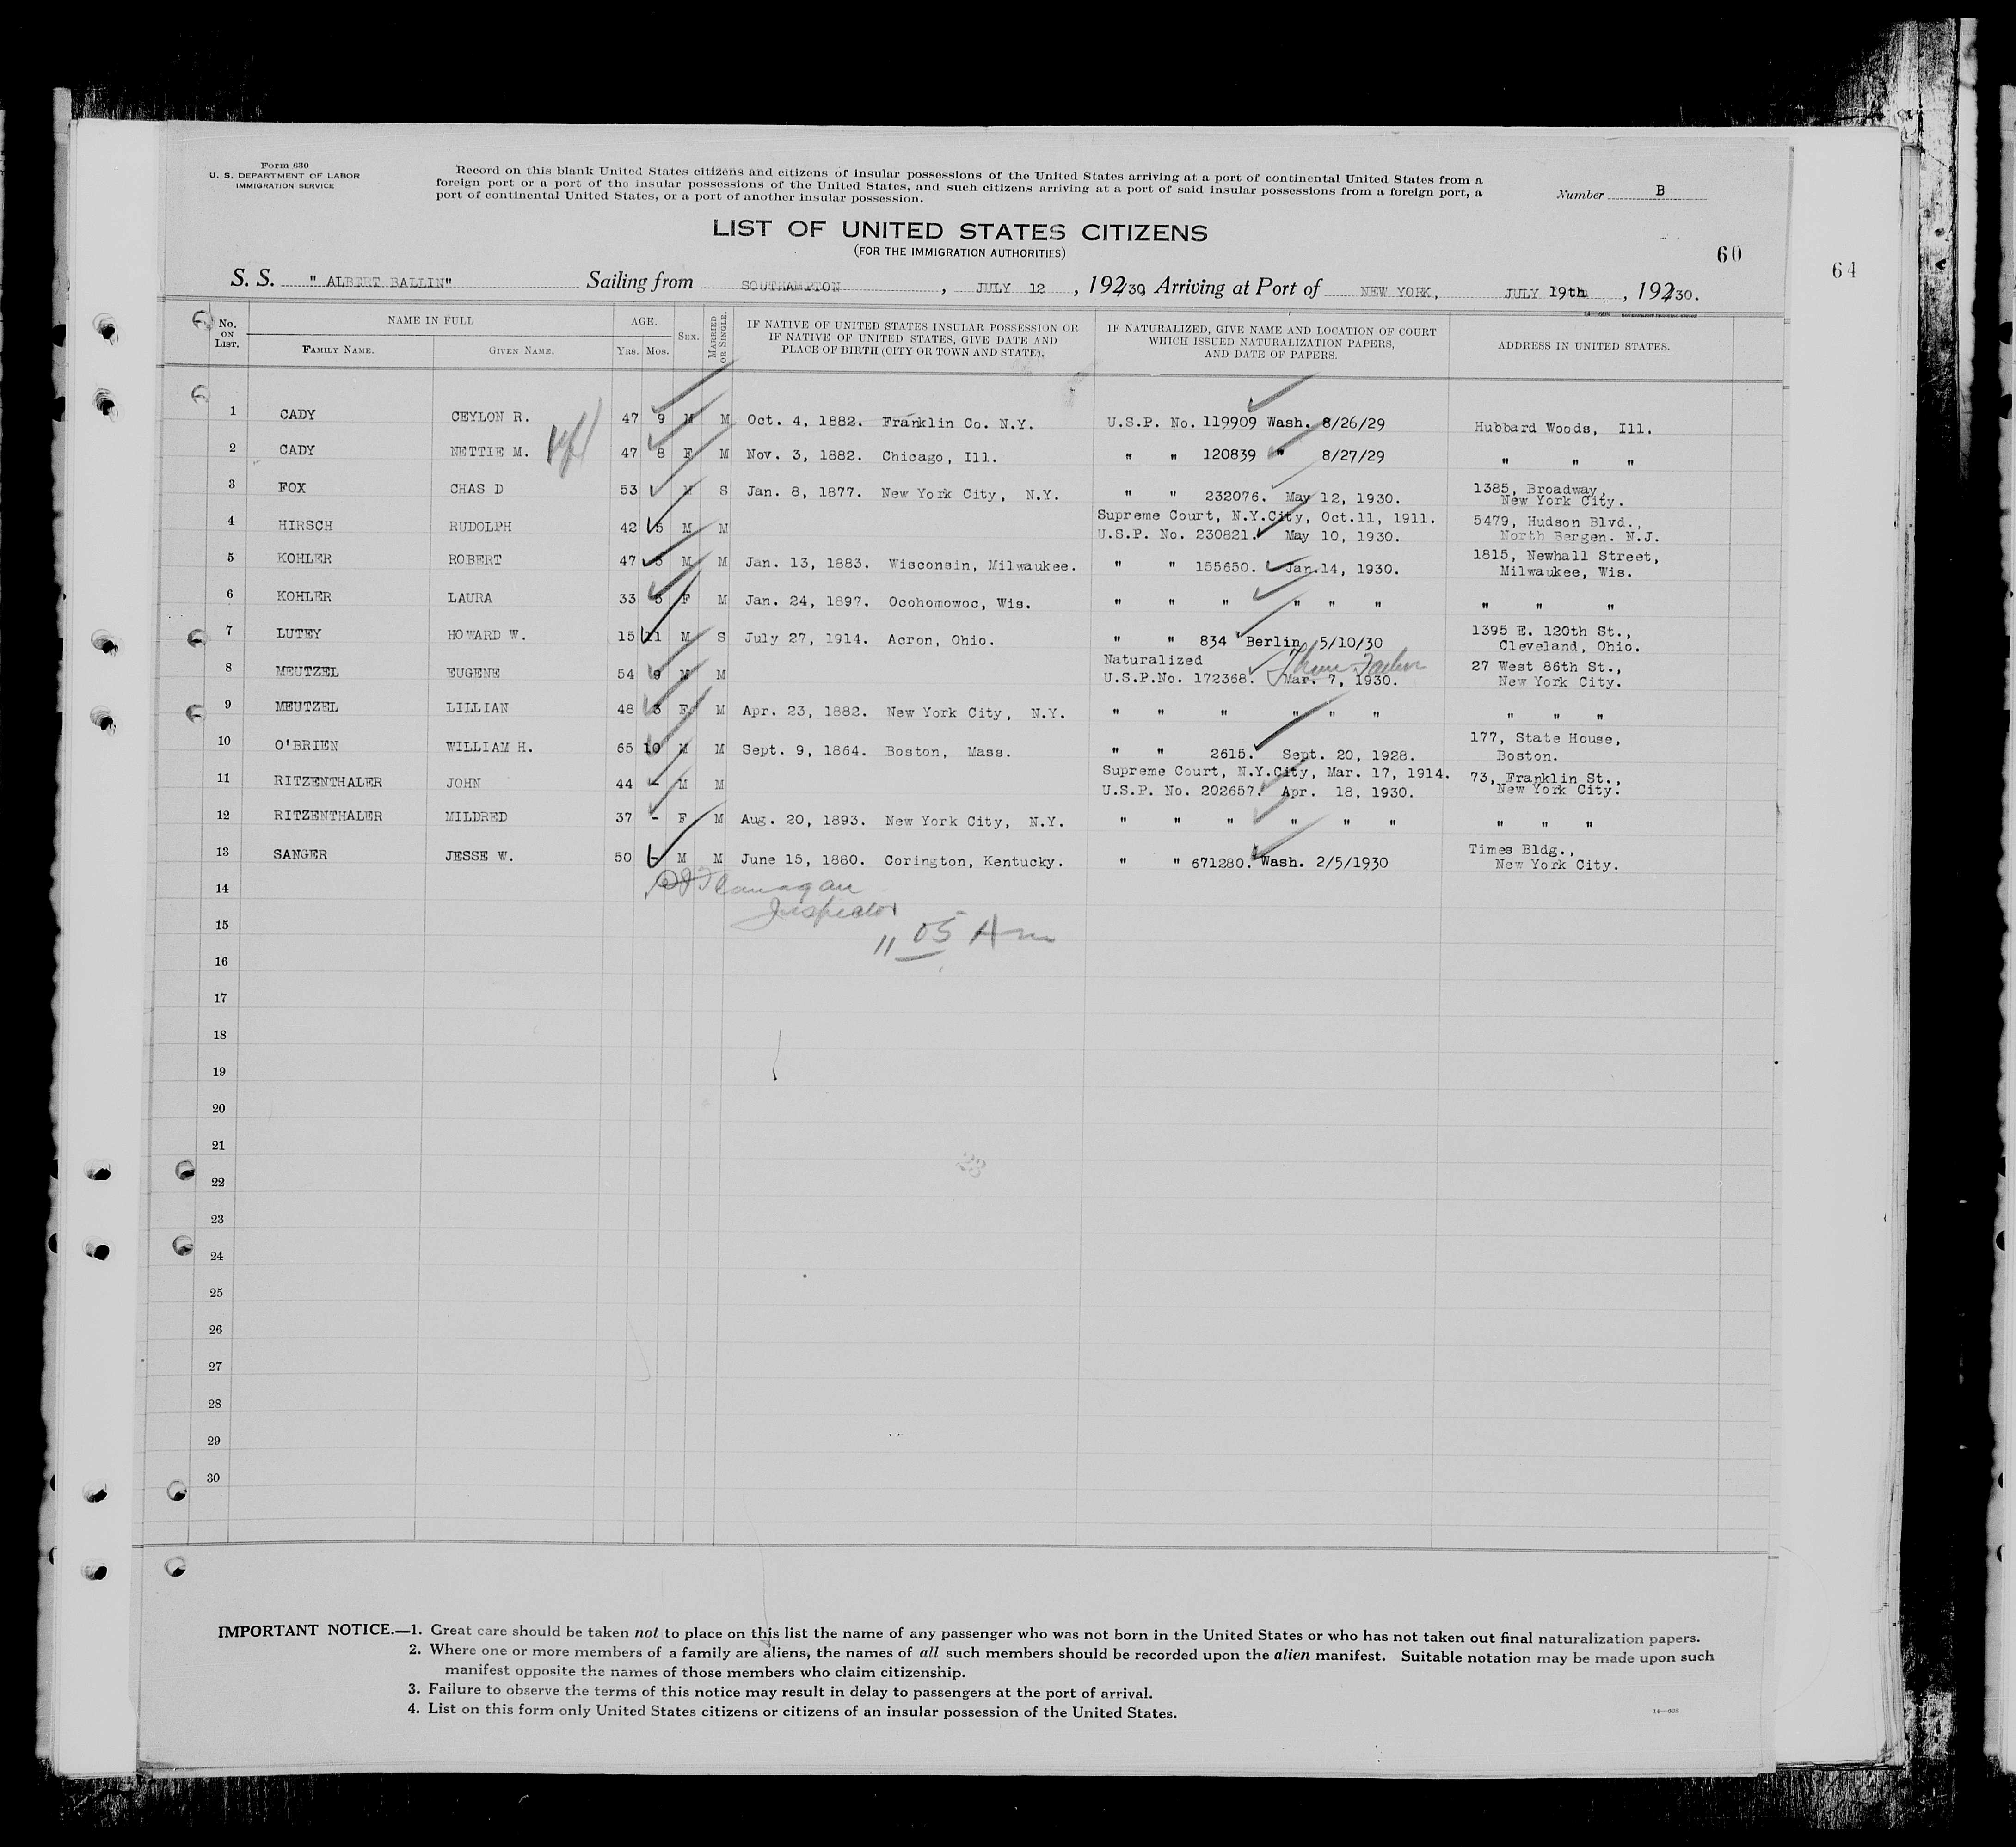 Form 630
U. S. DEPARTMENT OF LABOR
IMMIGRATION SERVICE
Record on this blank United States citizens and citizens of insular possessions of the United States arriving at a port of continental United States from a
foreign port or a port of the insular possessions of the United States, and such citizens arriving at a port of said insular possessions from a foreign port, a
port of continental United States, or a port of another insular possession.
Number B
LIST OF UNITED STATES CITIZENS
(FOR THE IMMIGRATION AUTHORITIES)
60
64
S. S. " ALBERT BALLIN" Sailing from SOUTHAMPTON , JULY 12 , 192/30, Arriving at Port of NEW YORK, JULY 19th , 192/30.
No. ON LIST. NAME IN FULL AGE. SEX. MARRIED OR SINGLE. IF NATIVE OF UNITED STATES INSULAR POSSESSION OR IF NATIVE OF UNITED STATES, GIVE DATE AND PLACE OF BIRTH (CITY OR TOWN AND STATE). IF NATURALIZED, GIVE NAME AND LOCATION OF COURT WHICH ISSUED NATURALIZATION PAPERS, AND DATE OF PAPERS. ADDRESS IN UNITED STATES.
FAMILY NAME. GIVEN NAME. YRS. MOS.
1 CADY CEYLON R. 47 9 M M Oct. 4, 1882. Franklin Co. N.Y. U.S.P. No. 119909 Wash. 8/26/29 Hubbard Woods, Ill.
2 CADY NETTIE M. 47 8 F M Nov. 3, 1882. Chicago, Ill. " " 120839 " 8/27/29 " " "
3 FOX CHAS D 53 M S Jan. 8, 1877. New York City, N.Y. " " 232076. May 12, 1930. 1385, Broadway, New York City.
4 HIRSCH RUDOLPH 42 5 M M Supreme Court, N.Y.City, Oct.11, 1911. U.S.P. No. 230821. May 10, 1930. 5479, Hudson Blvd., North Bergen. N.J.
5 KOHLER ROBERT 47 5 M M Jan. 13, 1883. Wisconsin, Milwaukee. " " 155650. Jan.14, 1930. 1815, Newhall Street, Milwaukee, Wis.
6 KOHLER LAURA 33 5 F M Jan. 24, 1897. Ocohomowoc, Wis. " " " " " " " " "
7 LUTEY HOWARD W. 15 11 M S July 27, 1914. Acron, Ohio. " " 834 Berlin 5/10/30 1395 E. 120th St., Cleveland, Ohio.
8 MEUTZEL EUGENE 54 9 M M Naturalized U.S.P.No. 172368. Mar. 7, 1930. 27 West 86th St., New York City.
9 MEUTZEL LILLIAN 48 3 F M Apr. 23, 1882. New York City, N.Y. " " " " " " " " "
10 O'BRIEN WILLIAM H. 65 10 M M Sept. 9, 1864. Boston, Mass. " " 2615. Sept. 20, 1928. 177, State House, Boston.
11 RITZENTHALER JOHN 44 - M M Supreme Court, N.Y.City, Mar. 17, 1914. U.S.P. No. 202657. Apr. 18, 1930. 73, Franklin St., New York City.
12 RITZENTHALER MILDRED 37 - F M Aug. 20, 1893. New York City, N.Y. " " " " " " " " "
13 SANGER JESSE W. 50 - M M June 15, 1880. Corington, Kentucky. " " 671280. Wash. 2/5/1930 Times Bldg., New York City.
14 Flanagan
Inspector
15
11 05 Am
16
17
18
19
20
21
22
23
24
25
26
27
28
29
30
IMPORTANT NOTICE.—1. Great care should be taken not to place on this list the name of any passenger who was not born in the United States or who has not taken out final naturalization papers.
2. Where one or more members of a family are aliens, the names of all such members should be recorded upon the alien manifest. Suitable notation may be made upon such
manifest opposite the names of those members who claim citizenship.
3. Failure to observe the terms of this notice may result in delay to passengers at the port of arrival.
4. List on this form only United States citizens or citizens of an insular possession of the United States.